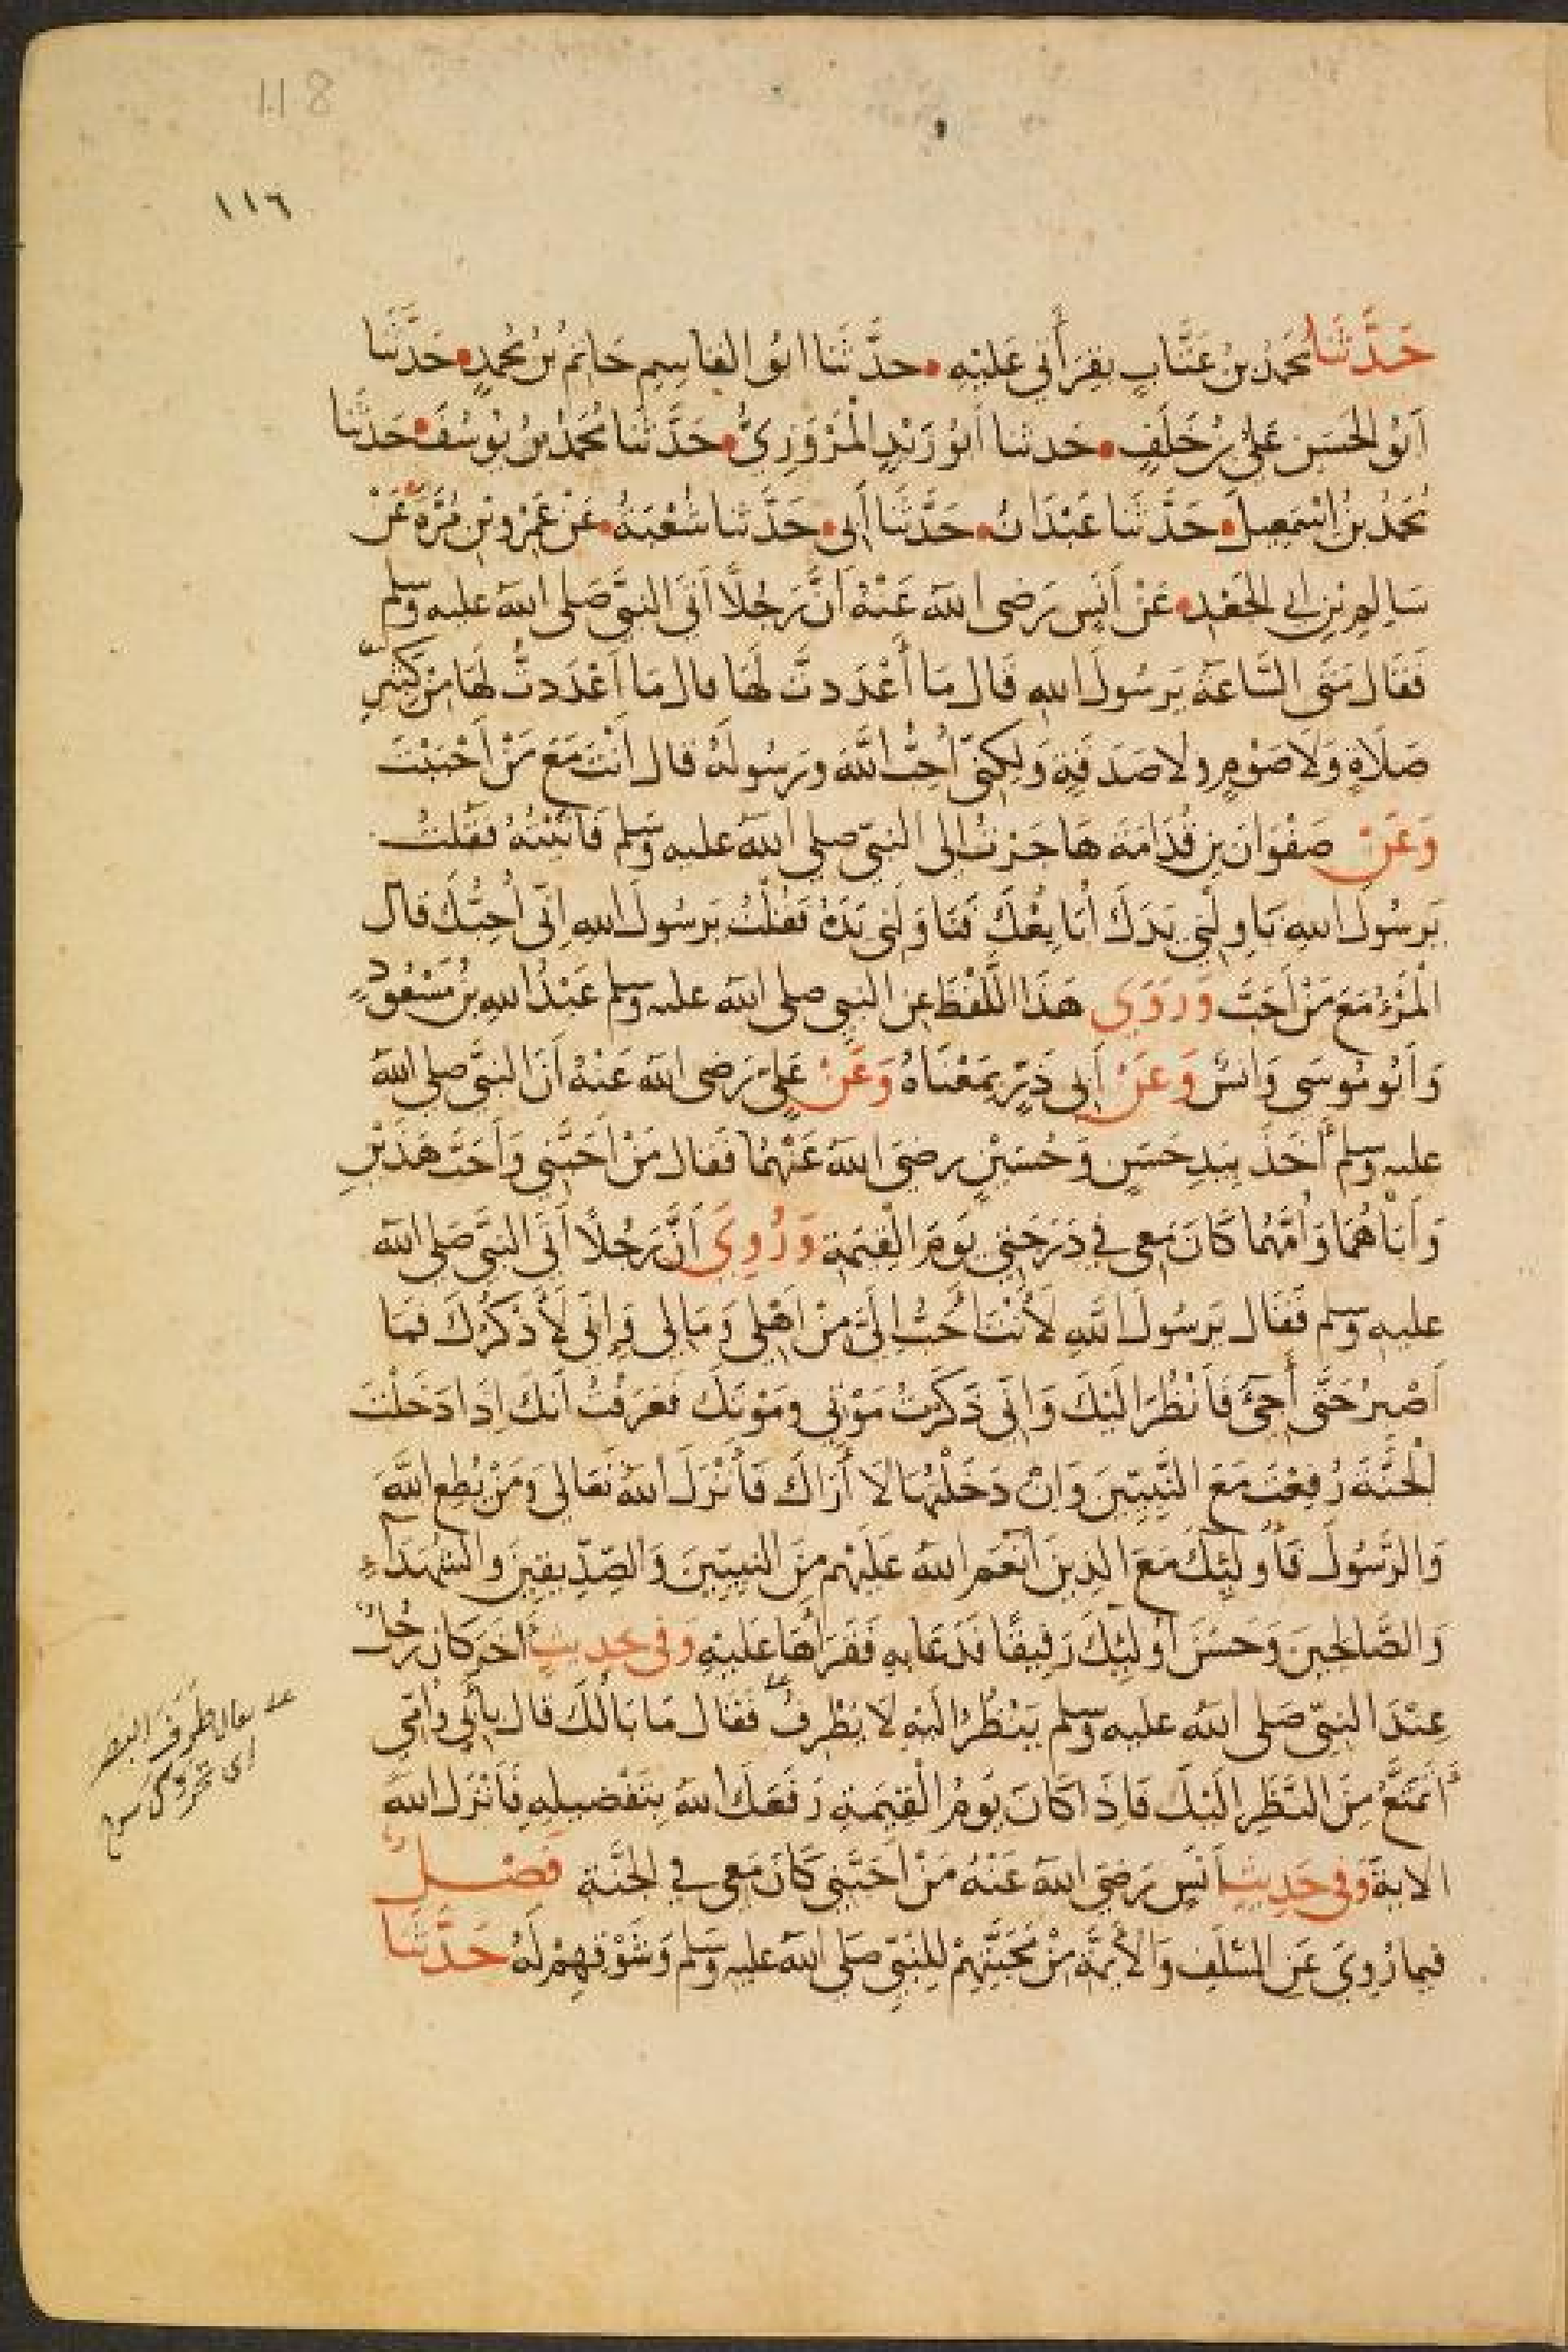 118
١١٦
حَدَّثَنا مُحَمدُ بنُ عَتَّابٍ بِقِرَأَتِي عَلَيْهِ • حدَّثَنا ابُو القاسِمِ حَاتِمُ بنُ مُحمدٍ • حَدَّثَنا
اَبُو الحَسَنِ عَلِيُّ بنُ خَلَفٍ • حَدثنا اَبُو زَيْدٍ الْمَرْوَزِيُّ • حَدَّثَنَا مُحَمَّدُ بنُ يُوسُفَ • حَدَّثَنا
مُحَمدُ بنُ اِسْمٰعِيلَ • حَدَّثَنَا عَبْدَانُ • حَدَّثَنَا أَبِي • حَدَّثنا شُعْبَةُ • عَنْ عَمْرِو بْنِ مُرَّةَ • عَنْ
سَالِمِ بْنِ ابى الجَعْدِ • عَنْ أَنَسٍ رَضى اللهُ عَنْهُ اَنَّ رَجُلًا اَتَى النبيَّ صَلى اللهُ عليه وسلم
فَقَال مَتَى السَّاعَةُ يَرسُولَ اللهِ قَال مَا أَعْدَدتَّ لَهَا قال مَا اَعْدَدتُّ لهَا مِنْ كَثِيرِ
صَلَاةٍ وَلَا صَوْمٍ ولا صَدَقَةٍ وَلٰكِنِّى اُحِبُّ اللهَ ورَسُولَهُ قال اَنْتَ مَعَ مَنْ اَحْبَبْتَ
وَعَنْ صَفْوَانَ بنِ قُدَامَةَ هَاجَرْتُ اِلى النبيّ صلى اللهُ عليه وسلم فَاَتَيْتُهُ فقلتُ
يَرسُولَ اللهِ نَاوِلْنِي يَدَكَ اُبَايِعْكَ فَنَاوَلَنِى يَدَهُ فَقُلْتُ يَرسُولَ اللهِ اِنّى اُحِبُّكَ قال
الْمَرْءُ مَعَ مَنْ اَحَبَّ وَرَوَى هَذَا اللَّفْظَ عِنِ النبى صلى اللهُ عليه وسلم عَبْدُ اللهِ بنُ مَسْعُودٍ
وَاَبُو مُوسَى وَانسٌ وَعَنْ أَبِى ذَرٍّ بِمَعْنَاهُ وَعَنْ عَلِيٍّ رَضى اللهُ عَنْهُ اَنَّ النبيَّ صلى اللهُ
عليه وسلم أَخَذَ بِيَدِ حَسَنٍ وَحُسَيْنٍ رضىَ اللهُ عَنْهُمَا فَقال مَنْ اَحَبَّنِى وَاَحَبَّ هَذَيْنِ
وَاَبَاهُمَا وَاُمَّهُما كَانَ مَعِى فِي دَرَجَتِي يَومَ الْقِيٰمَةِ وَرُوِىَ اَنَّ رَجُلًا أَتَى النبَّىَ صَلى اللهُ
عليه وسلم فَقَال يَرسُولَ اللهِ لَاَنْتَ اَحَبُّ اِلَىَّ مِنْ اَهْلِى وَمَالِى وَاِنّى لَأَذْكُرُكَ فَمَا
اَصْبِرُ حَتَّى أَجِئَ فَاَنْظُرَ اِلَيْكَ وَاِنّى ذَكَرْتُ مَوْتِى ومَوْتَكَ فَعَرَفْتُ اَنكَ اِذَا دَخَلْتَ
الْجَنَّةَ رُفِعْتَ مَعَ النَّبِيّيِنَ وَاِنْ دَخَلْتُهَا لَا أَرَاكَ فَاَنْزَلَ اللهُ تَعَالى وَمَنْ يُطِعِ اللهَ
وَالرَّسُولَ فَاُولٰئِكَ مَعَ الذِينَ اَنْعَمَ اللهُ عَلَيْهِم مِنَ النبِيّينَ وَالصِّدِّيقِينَ والشهَدَاءِ
وَالصَّالِحِينَ وَحَسُنَ اُولٰئِكَ رَفِيقًا فَدَعَا بِهِ فَقَرَأَهَا عَليْهِ وَفى حَدِيثٍ اٰخَرَ كانَ رَجُلٌ
عِنْدَ النبيّ صَلى اللهُ عليه وسلم يَنْظُرُ اِلَيْهِ لَا يَطْرِفُ فَقَال مَا بَالُكَ قَالَ بِأَبِى وَاُمّى
اَتَمَتَّعُ مِنَ النَّظَرِ اِلَيْكَ فَاِذَا كَانَ يَوْمُ الْقِيٰمَةِ رَفَعَكَ اللهُ بِتَفْضِيلِهِ فَاَنْزَلَ اللهُ
الايةَ وَفى حَدِيثِ اَنَسٍ رَضِىَ اللهُ عَنْهُ مَنْ اَحَبَّنِى كَانَ مَعِى في الجَنَّةِ فَصْلٌ
فيما رُوِيَ عَنِ السَّلَفِ وَالأَئِمَّةِ مِنْ مَحَبَّتِهِمْ لِلنَبيّ صَلى اللهُ عليه وسلم وَشَوْقِهِمْ لَهُ حَدَّثَنا
يقال طَرَفَ البَصَرُ
اى تحرّك